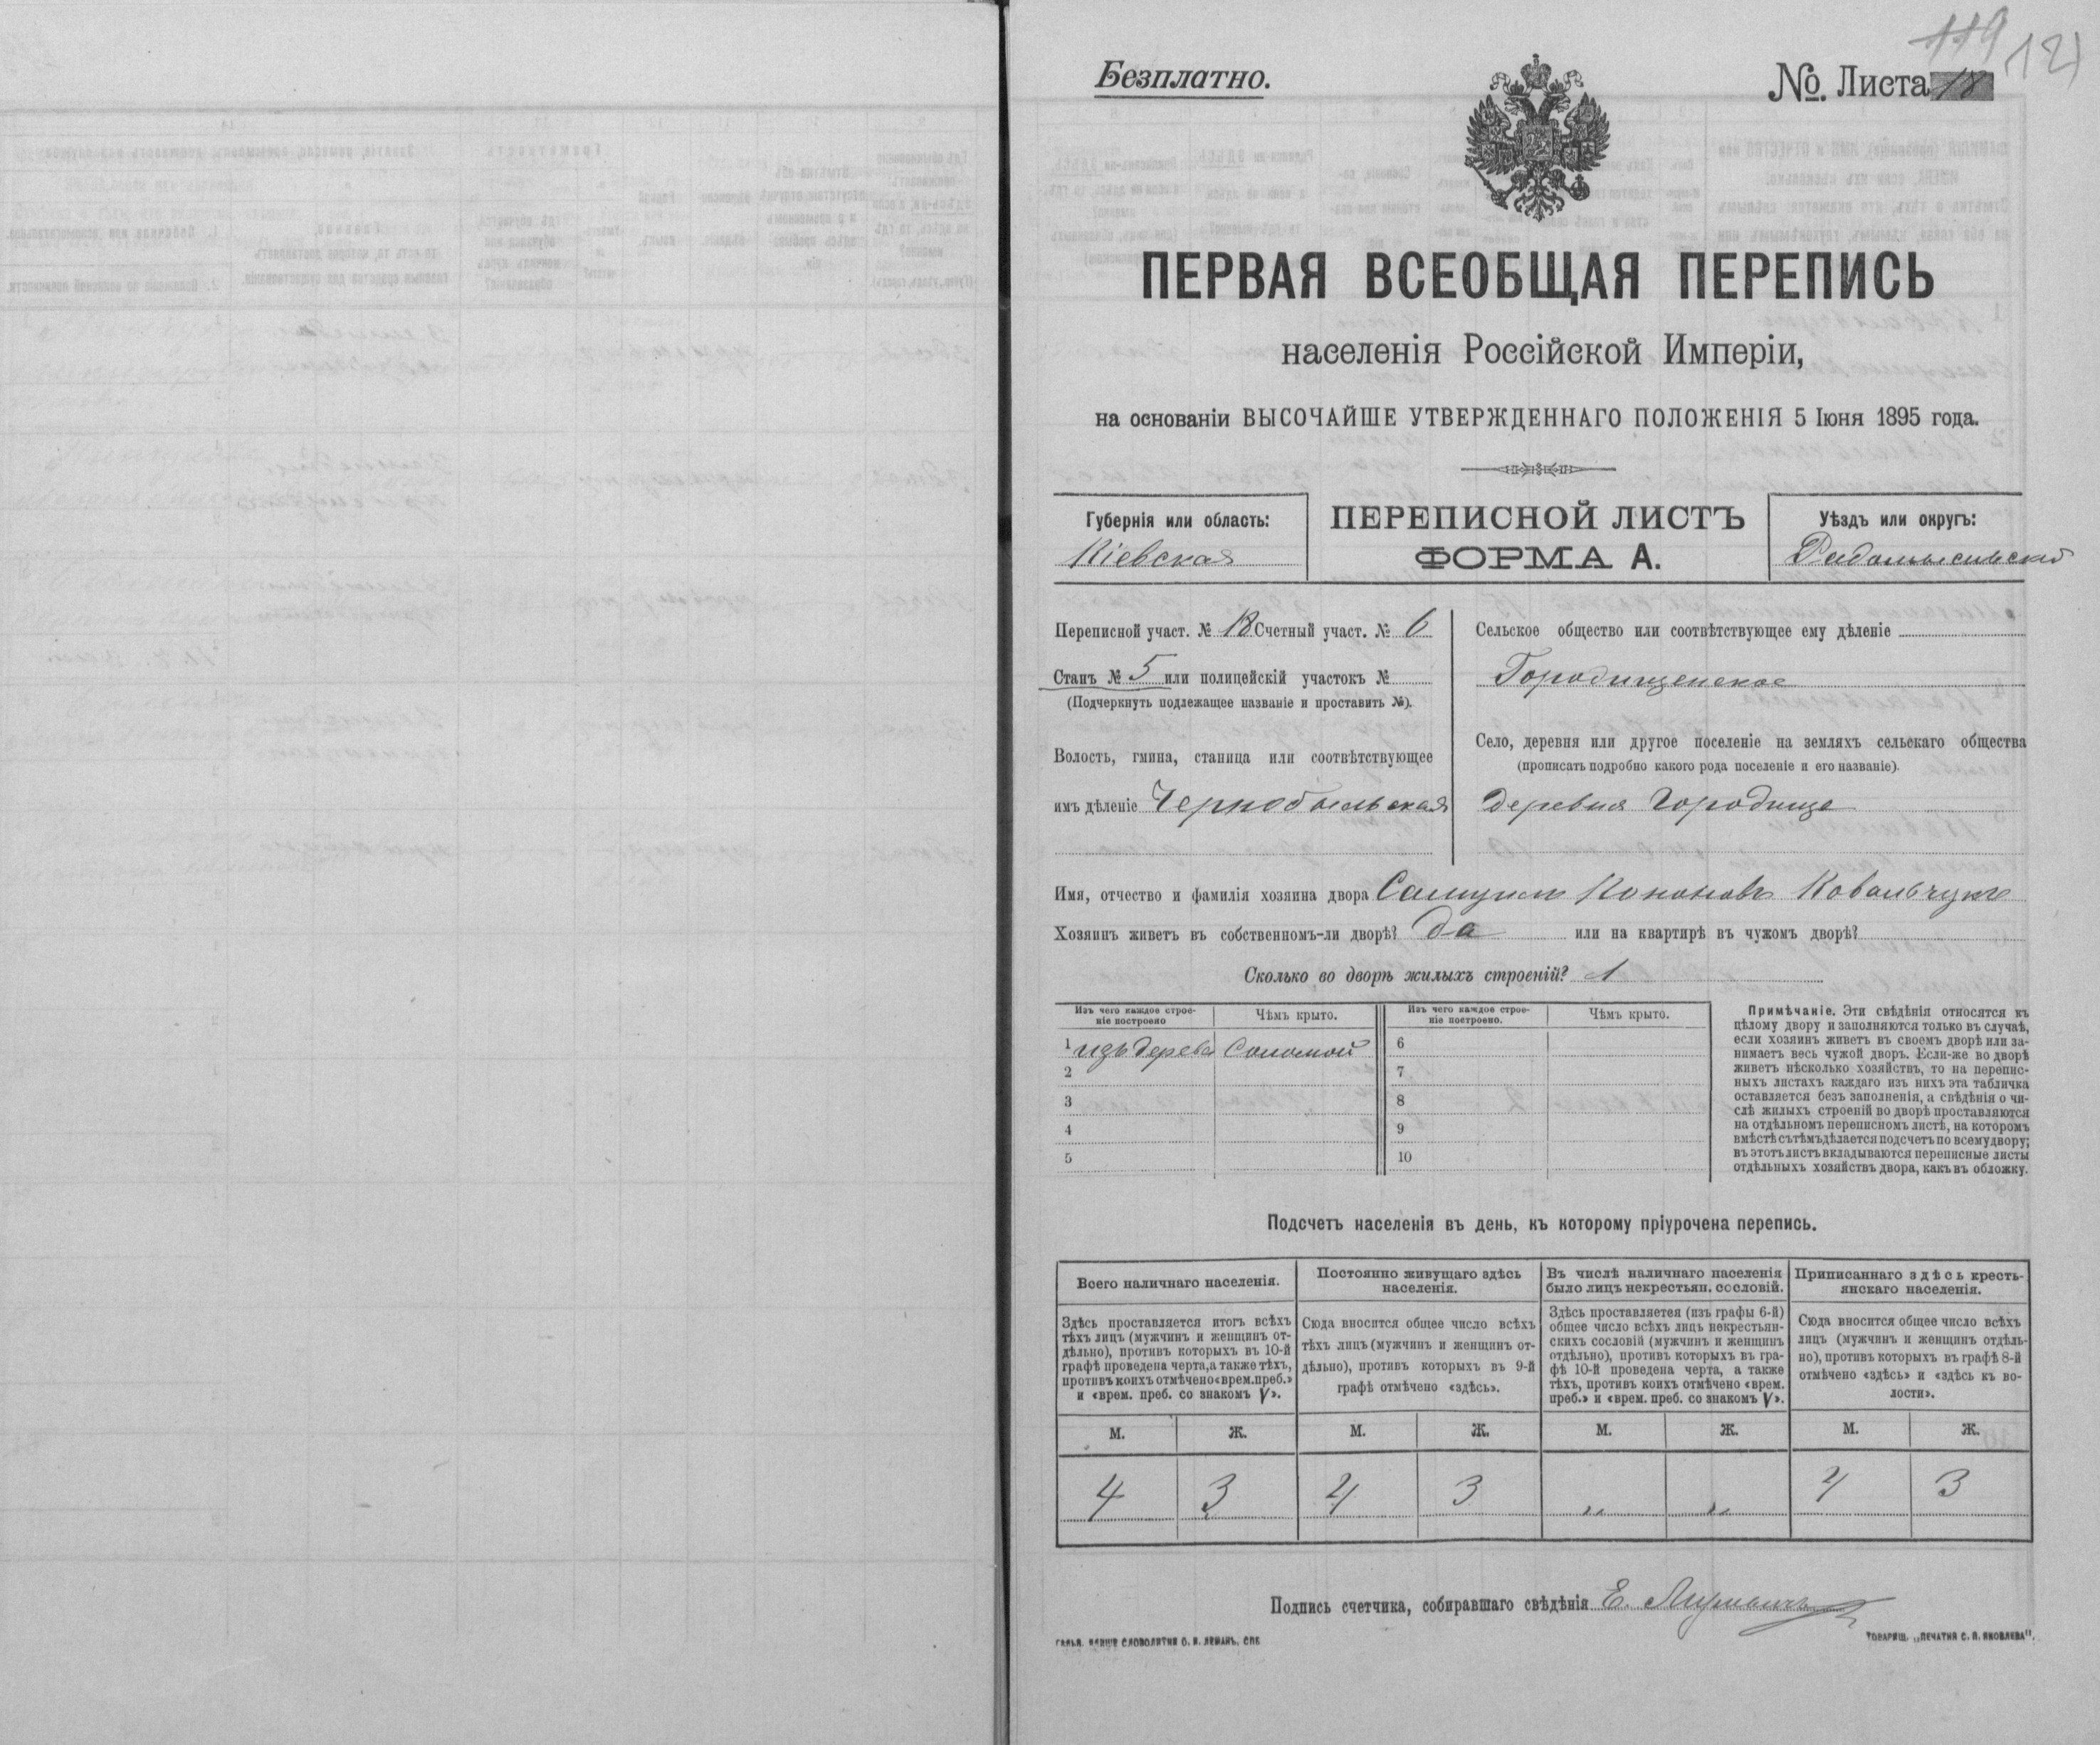 119 121
Безплатно.
№. Листа 18
ПЕРВАЯ ВСЕОБЩАЯ ПЕРЕПИСЬ
населенія Россійской Имперіи,
на основаніи ВЫСОЧАЙШЕ УТВЕРЖДЕННАГО ПОЛОЖЕНІЯ 5 Іюня 1895 года.
Губернія или область:
Кіевская
ПЕРЕПИСНОЙ ЛИСТЪ
ФОРМА А.
Уѣздъ или округъ:
Радомысльскій
Переписной участ. № 18 Счетный участ. № 6
Станъ № 5 или полицейскій участокъ №
(Подчеркнуть подлежащее названіе и проставить №).
Волость, гмина, станица или соотвѣтствующее
имъ дѣленіе Чернобыльская
Сельское общество или соотвѣтствующее ему дѣленіе
Городищенское
Село, деревня или другое поселеніе на земляхъ сельскаго общества
(прописать подробно какого рода поселеніе и его названіе).
деревня Городище
Имя, отчество и фамилія хозяина двора Самуилъ Кононовъ Ковальчукъ
Хозяинъ живетъ въ собственномъ-ли дворѣ? да или на квартирѣ въ чужомъ дворѣ?
Сколько во дворѣ жилыхъ строеній? 1
Изъ чего каждое строе-
ніе построено
Чѣмъ крыто.
Изъ чего каждое строе-
ніе построено.
Чѣмъ крыто.
1 изъ дерева Соломой 6
2 7
3 8
4 9
5 10
Примѣчаніе. Эти свѣдѣнія относятся къ
цѣлому двору и заполняются только въ случаѣ,
если хозяинъ живетъ въ своемъ дворѣ или за-
нимаетъ весь чужой дворъ. Если-же во дворѣ
живетъ нѣсколько хозяйствъ, то на перепис-
ныхъ листахъ каждаго изъ нихъ эта табличка
оставляется безъ заполненія, а свѣдѣнія о чи-
слѣ жилыхъ строеній во дворѣ проставляются
на отдѣльномъ переписномъ листѣ, на которомъ
вмѣстѣ съ тѣмъ дѣлается подсчетъ по всему двору;
въ этотъ листъ вкладываются переписные листы
отдѣльныхъ хозяйствъ двора, какъ въ обложку.
Подсчетъ населенія въ день, къ которому пріурочена перепись.
Всего наличнаго населенія.
Здѣсь проставляется итогъ всѣхъ
тѣхъ лицъ (мужчинъ и женщинъ от-
дѣльно), противъ которыхъ въ 10-й
графѣ проведена черта, а также тѣхъ,
противъ коихъ отмѣчено «врем. преб.»
и «врем. преб. со знакомъ V».
Постоянно живущаго здѣсь
населенія.
Сюда вносится общее число всѣхъ
тѣхъ лицъ (мужчинъ и женщинъ от-
дѣльно), противъ которыхъ въ 9-й
графѣ отмѣчено «здѣсь».
Въ числѣ наличнаго населенія
было лицъ некрестьян. сословій.
Здѣсь проставляется (изъ графы 6-й)
общее число всѣхъ лицъ некрестьян-
скихъ сословій (мужчинъ и женщинъ
отдѣльно), противъ которыхъ въ гра-
фѣ 10-й проведена черта, а также
тѣхъ, противъ коихъ отмѣчено «врем.
преб.» и «врем. преб. со знакомъ V».
Приписаннаго здѣсь кресть-
янскаго населенія.
Сюда вносится общее число всѣхъ
лицъ (мужчинъ и женщинъ отдѣль-
но), противъ которыхъ въ графѣ 8-й
отмѣчено «здѣсь» и «здѣсь къ во-
лости».
М. Ж. М. Ж. М. Ж. М. Ж.
4 3 4 3 „ „ 4 3
Подпись счетчика, собиравшаго свѣдѣнія Е.
СЛОВОЛИТНЯ О. И. ЛЕМАНЪ, СПБ
ТОВАРИЩ. „ПЕЧАТНЯ С. П. ЯКОВЛЕВА".